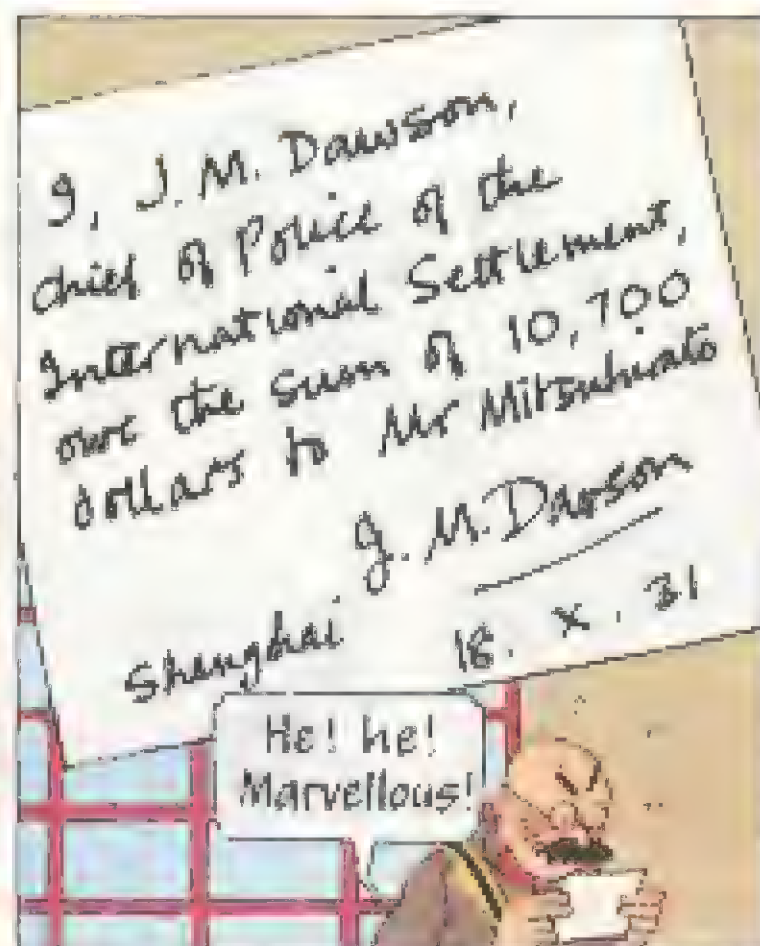 I, J. M. Dawson,
chief of Police of the
International Settlement,
owe the sum of 10,700
dollars to Mr Mitsuhirato
J. M. Dawson
Shanghai 18. X. 31
He! he!
Marvellous!